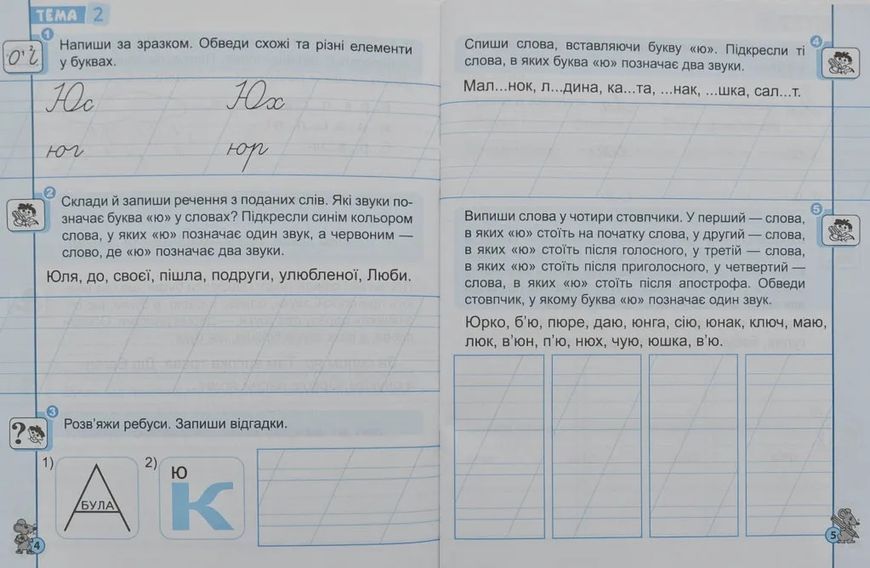 ТЕМА 2
1
Напиши за зразком. Обведи схожі та різні елементи
у буквах.
Юс Юх
юг юр
2
Склади й запиши речення з поданих слів. Які звуки по-
значає буква «ю» у словах? Підкресли синім кольором
слова, у яких «ю» позначає один звук, а червоним —
слово, де «ю» позначає два звуки.
Юля, до, своєї, пішла, подруги, улюбленої, Люби.
3
Розв'яжи ребуси. Запиши відгадки.
1) А БУЛА 2) Ю К
4
4
Спиши слова, вставляючи букву «ю». Підкресли ті
слова, в яких буква «ю» позначає два звуки.
Мал...нок, л...дина, ка...та, ...нак, ...шка, сал...т.
5
Випиши слова у чотири стовпчики. У перший — слова,
в яких «ю» стоїть на початку слова, у другий — слова,
в яких «ю» стоїть після голосного, у третій — слова,
в яких «ю» стоїть після приголосного, у четвертий —
слова, в яких «ю» стоїть після апострофа. Обведи
стовпчик, у якому буква «ю» позначає один звук.
Юрко, б'ю, пюре, даю, юнга, сію, юнак, ключ, маю,
люк, в'юн, п'ю, нюх, чую, юшка, в'ю.
5